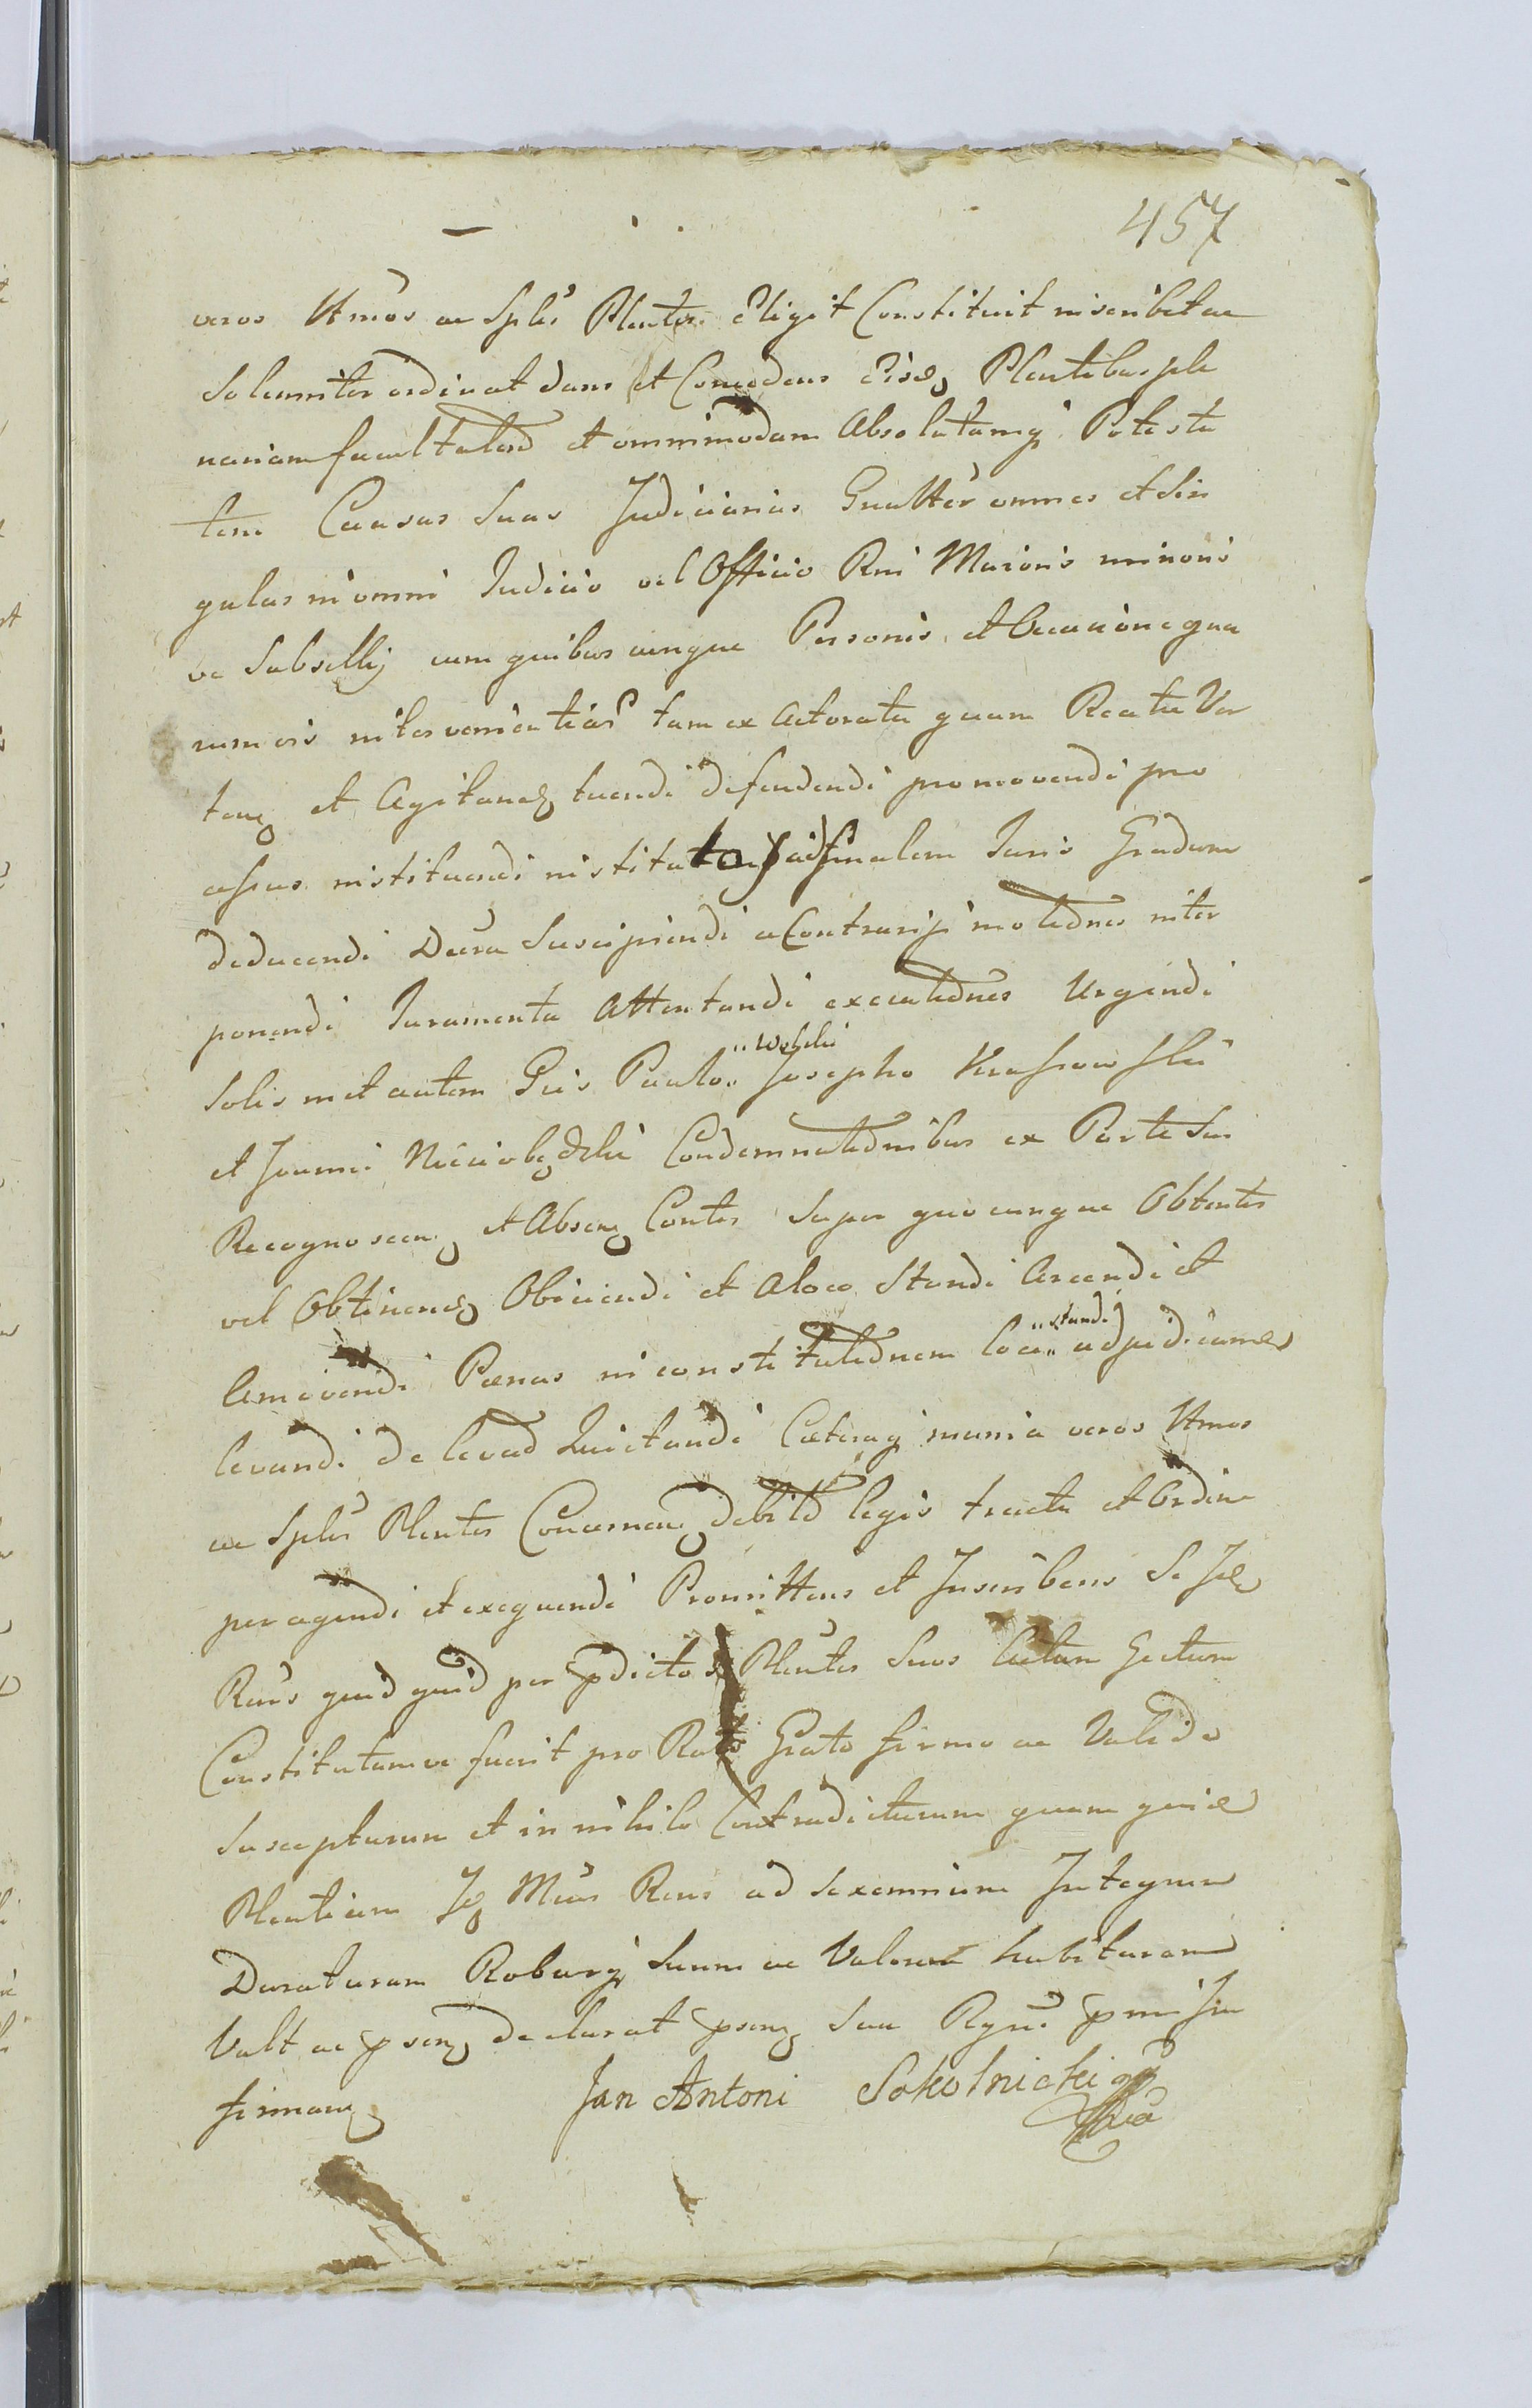 457
veros Ltmos ac Sples Plentes Eligit Constituit inscribit ac
Solenniter ordinat dans et Concedens Eisd Plentibus ple
nariam facultatem et omnimodam Absolutamq Potesta
tem Causas Suas Judiciarias Gnaliter omnes et Sin
gulas in omni Judicio vel Officio Rni Maioris minoris
ve Subsellij cum quibuscunque Personis et Occasione qua
rumvis intervenientias tam ex Actoratu quam Reatu Ver
ten et Agitand tuendi defendendi promovendi pro
cessus instituendi institutos ad finalem Juris Gradum
deducendi Decreta Suscipiendi a Contrarijs motiones inter
ponendi Juramenta Attentandi executiones Urgendi
Solis met autem Gsis Paulo „Wolski Josepho Krassowski
et Joanni Condemnationibus ex Parte Sui
Recognoscen et Absen Contes Super quocunque Obtentis
vel Obtinend Obiiciendi et A loco Standi Arcendi et
Amovendi Pœnas in constitutionem Loci „standi adjudicand
levandi de levatis Quietandi Cæteraq munia veros Ltmos
ac Sples Plentes Concernen debito legis tractu et Ordine
peragendi et exequendi Promittens et Inscribens Se Id
Rens quid quid per pdictos Plentes Suos Actum Gestum
Constitutumve fuerit pro Rato Grato firmo ac Valido
Suscepturum et in nihilo Contradicturum quam quid
Plentiam Id Mcus Rens ad Sexennium Integrum
Duraturam Roburq Suum ac Valorem habituram
Vult ac psen declarat psen Sua Rgne pmissa
firman
Jan Antoni Sokolnicki